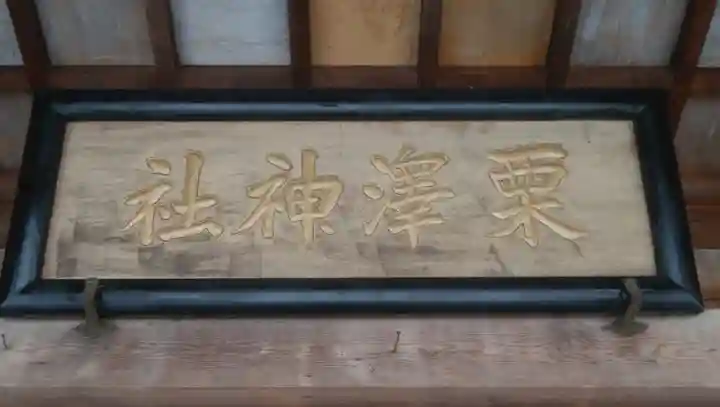 栗澤神社